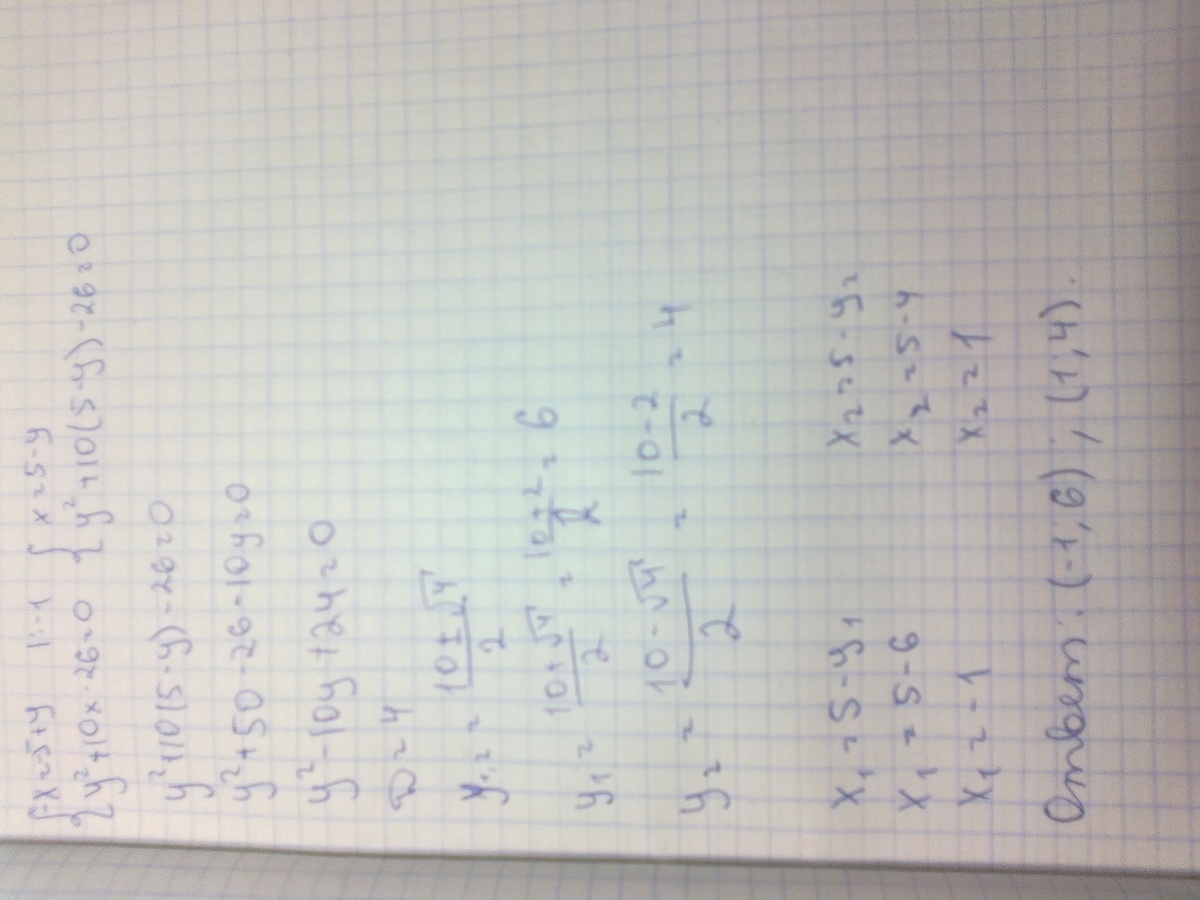 {-x=-5+y |:-1 {x=5-y
{y²+10x-26=0 {y²+10(5-y)-26=0
y²+10(5-y)-26=0
y²+50-26-10y=0
y²-10y+24=0
D=4
y₁,₂ = (10±√4)/2
y₁ = (10+√4)/2 = (10+2)/2 = 6
y₂ = (10-√4)/2 = (10-2)/2 = 4
x₁=5-y₁ x₂=5-y₂
x₁=5-6 x₂=5-4
x₁=-1 x₂=1
Ответ: (-1;6); (1;4).